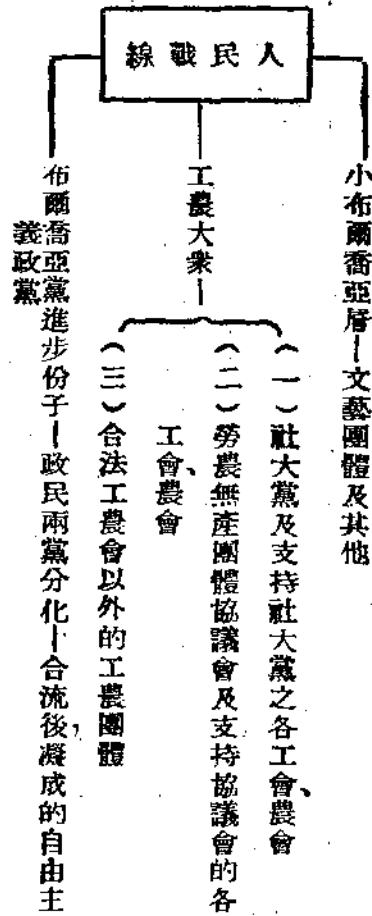 人民戰線
小布爾喬亞層—文藝團體及其他
工農大衆—
(一)社大黨及支持社大黨之各工會、農會
(二)勞農無產團體協議會及支持協議會的各
工會、農會
(三)合法工農會以外的工農團體
布爾喬亞黨進步份子—政民兩黨分化—合流後,凝成的自由主
義政黨